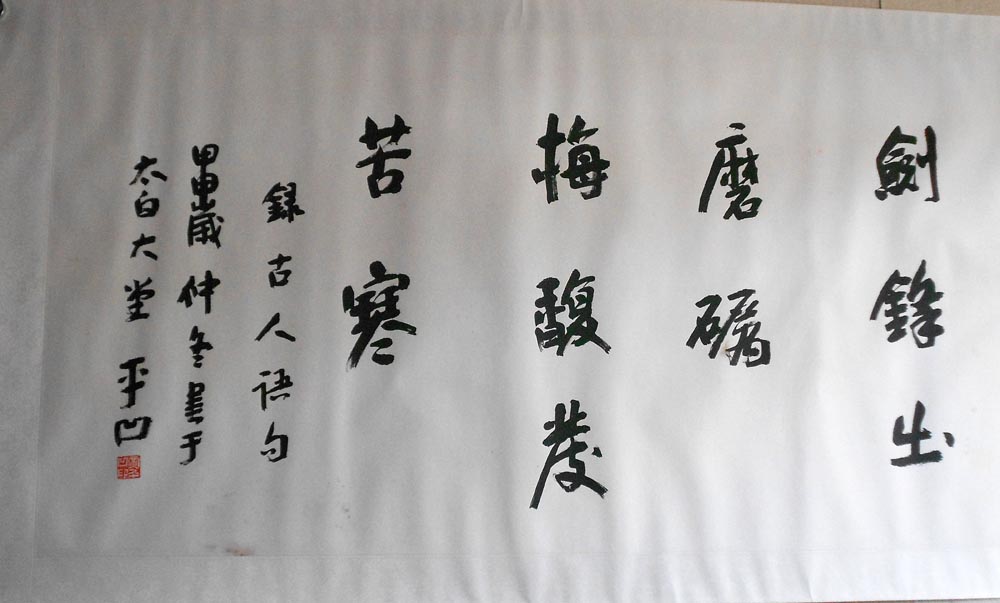 劍鋒出
磨礪
梅馥發
苦寒
録古人語句
甲申歲仲冬書于
太白大堂 平凹